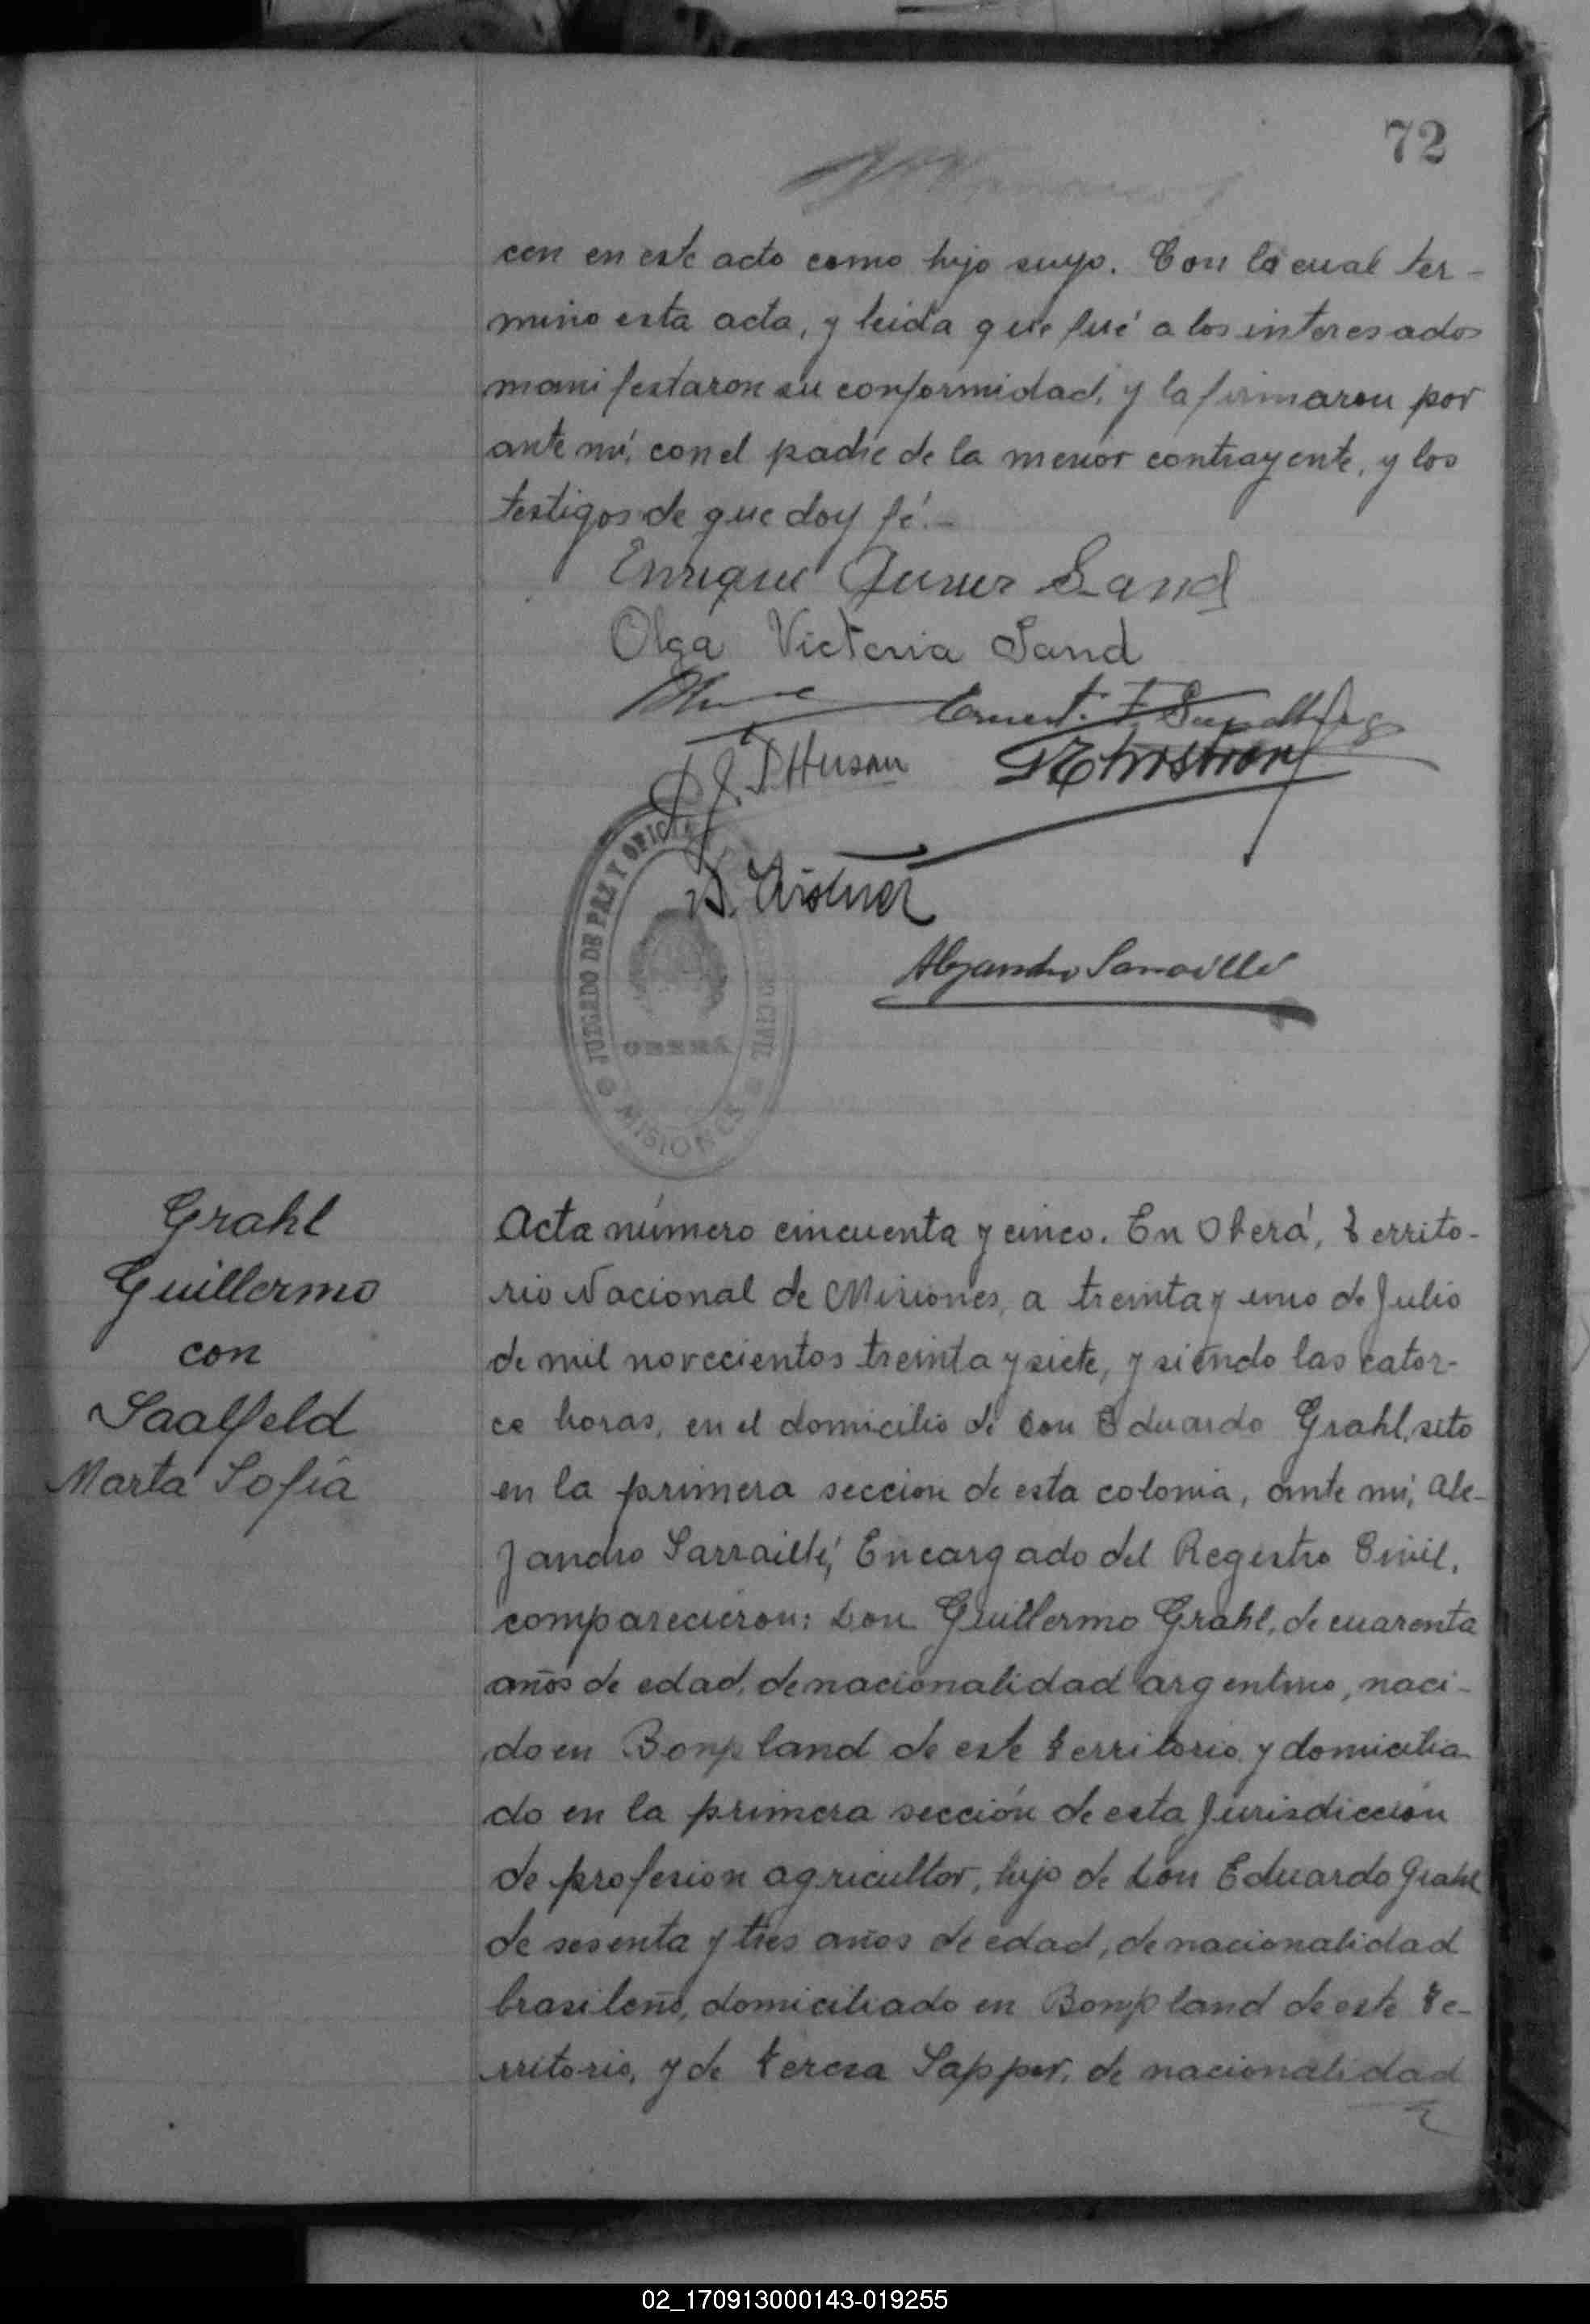 72
cen en este acto como hijo suyo. Con lo cual ter-
mino esta acta, y leida que fué a los interesados
manifestaron su conformidad, y la firmaron por
ante mi, con el padre de la menor contrayente, y los
testigos de que doy fé.-
Enrique Sand
Olga Victoria Sand
Alejandro Sarraillé
JUZGADO DE PAZ Y OFICI CIVIL
OBERÁ
MISIONES
Grahl
Guillermo
con
Saalfeld
Marta Sofía
Acta número cincuenta y cinco. En Oberá, territo-
rio Nacional de Misiones, a treinta y uno de Julio
de mil novecientos treinta y siete, y siendo las cator-
ce horas, en el domicilio de Don Eduardo Grahl, sito
en la primera sección de esta colonia, ante mi, Ale-
jandro Sarraillé, Encargado del Registro Civil,
comparecieron: Don Guillermo Grahl, de cuarenta
años de edad, de nacionalidad argentino, naci-
do en Bonpland de este territorio y domicilia-
do en la primera sección de esta Jurisdicción
de profesion agricultor, hijo de Don Eduardo Grahl
de sesenta y tres años de edad, de nacionalidad
brasileño, domiciliado en Bompland de este te-
rritorio, y de teresa Sapper, de nacionalidad
02_170913000143-019255